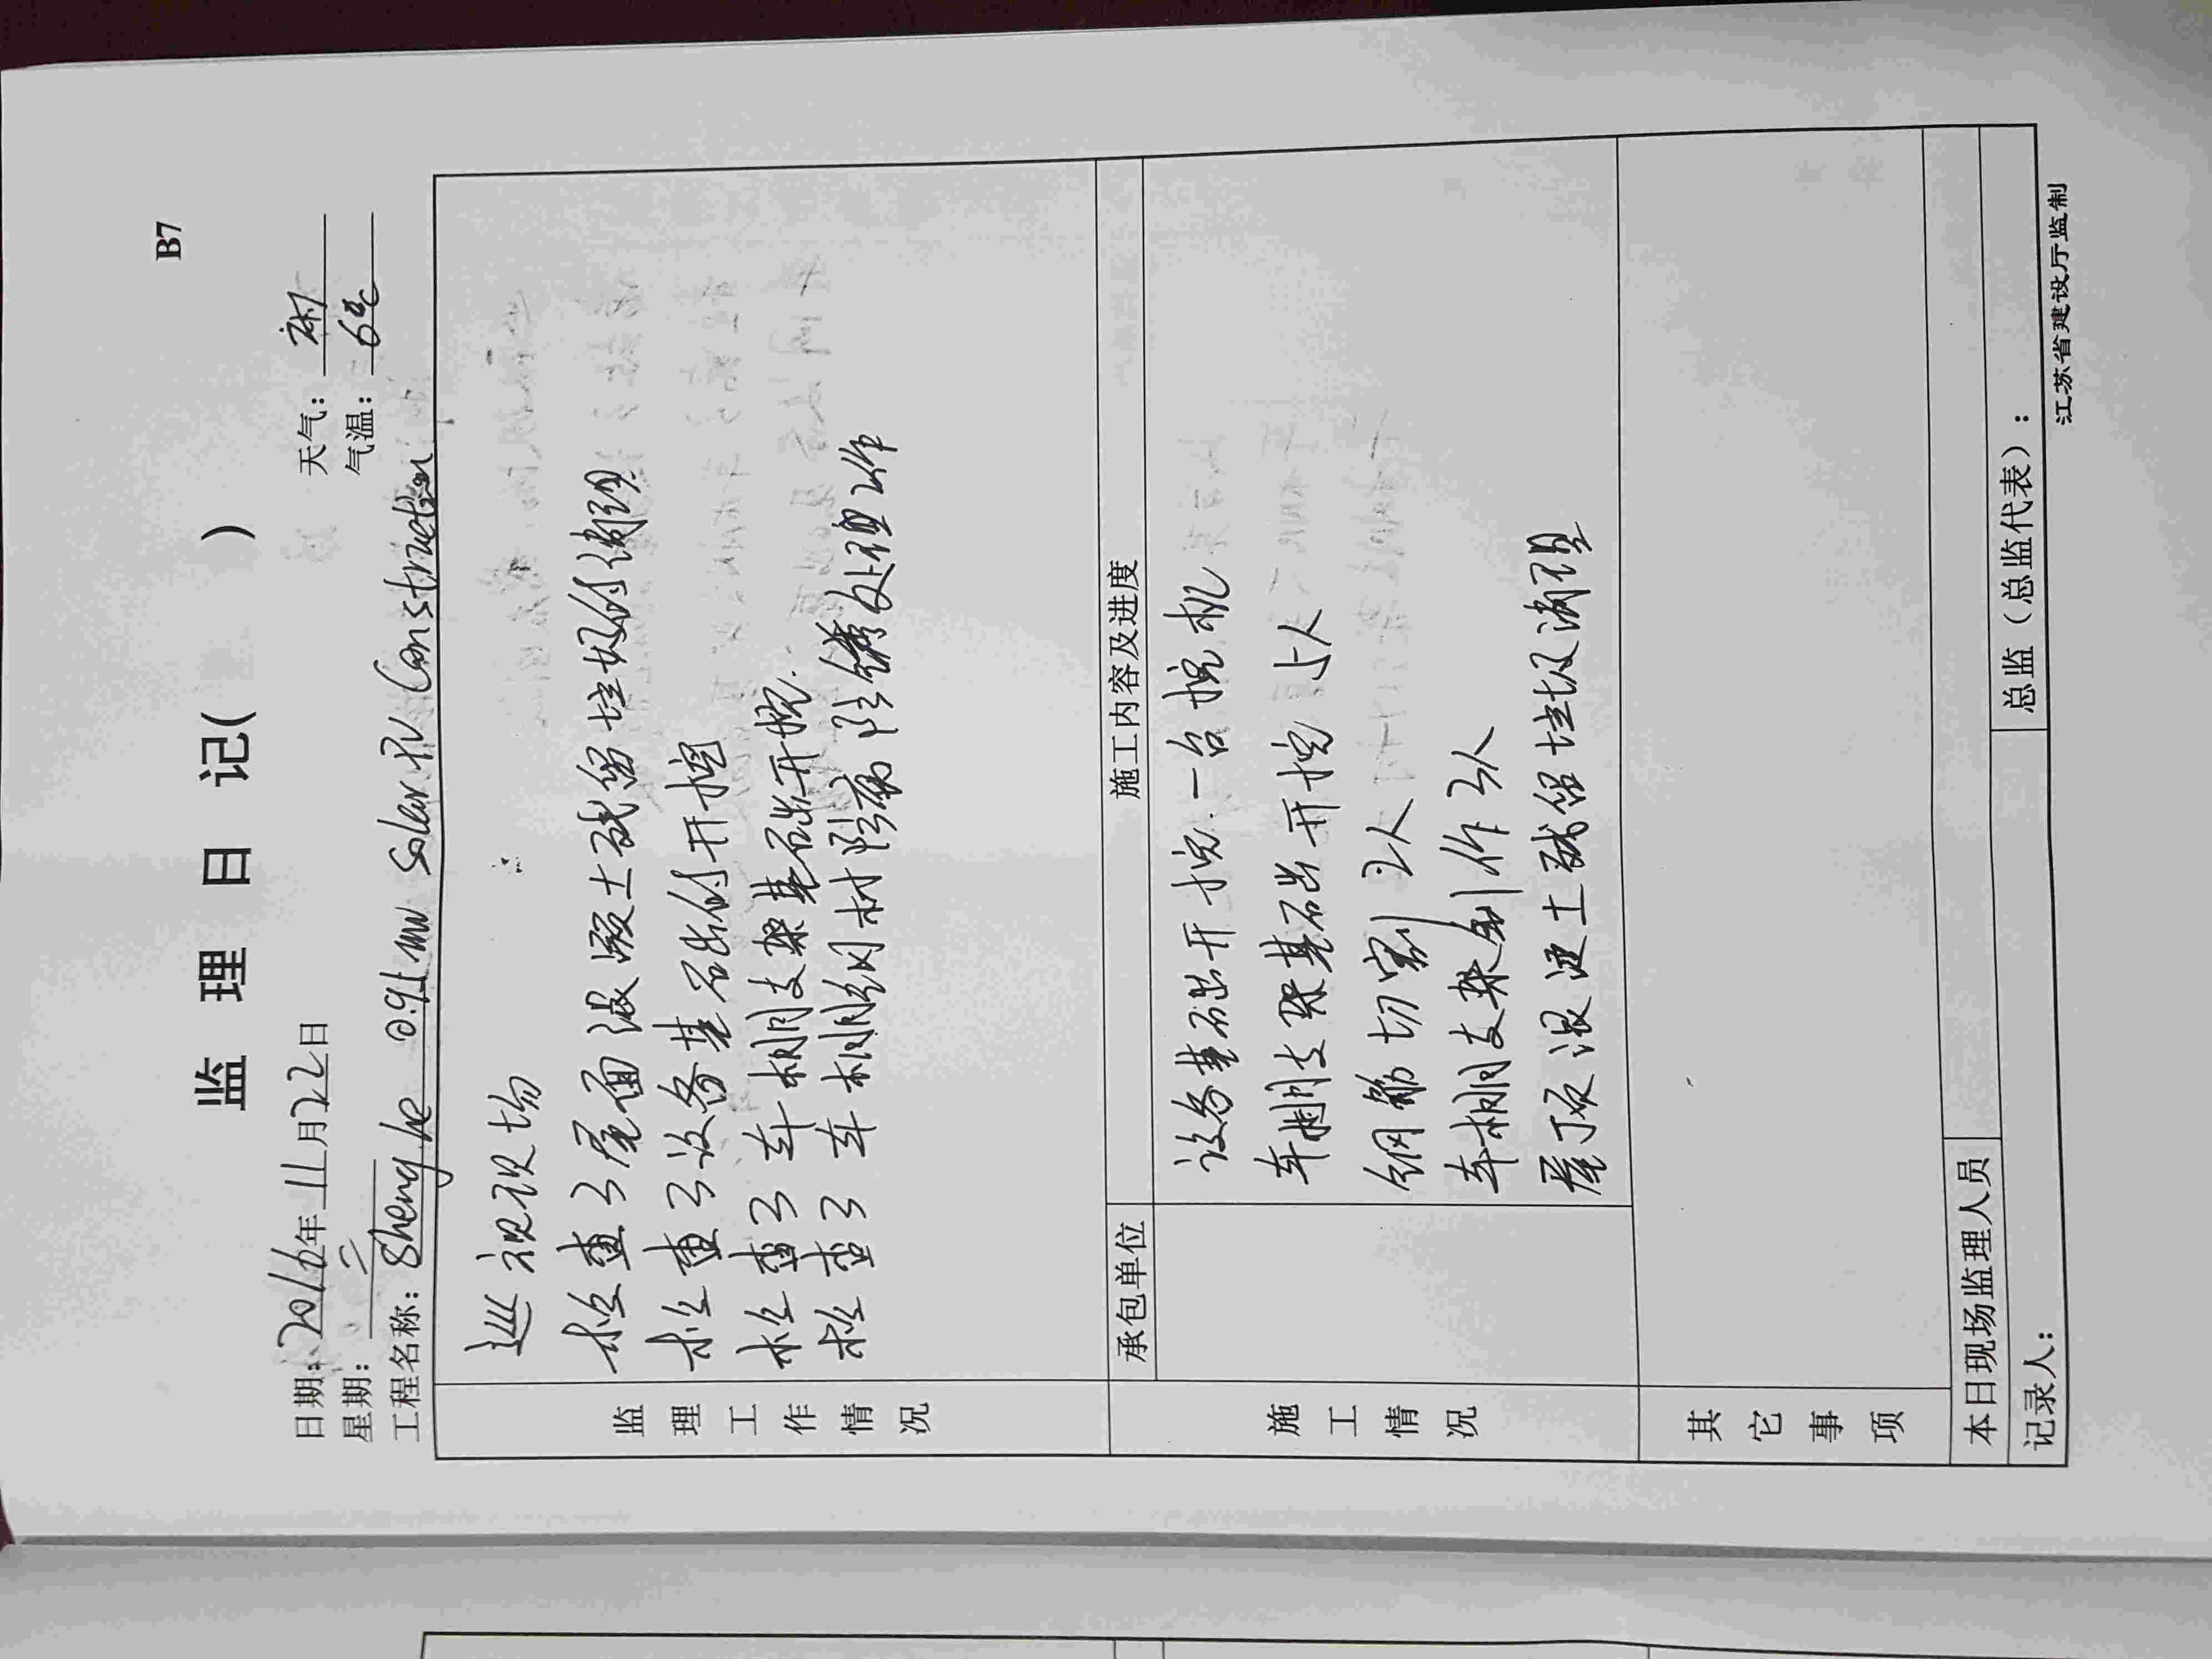 B7
监 理 日 记( )
日期:2016年11月22日 天气:
星期:二 气温:6℃
工程名称:Shenghe 0.95MW Solar PV Construction
监理工作情况
巡视现场
检查了屋面混凝土残留垃圾的清理
检查了设备基础的开挖
检查了车棚支架基础开挖.
检查了车棚钢材 除锈处理工作
施工情况
承包单位 施工内容及进度
设备基础开挖.一台挖机
车棚支架基础开挖 5人
钢筋切割 2人
车棚支架制作 3人
屋顶混凝土残留垃圾清理
其它事项
本日现场监理人员
记录人: 总监(总监代表):
江苏省建设厅监制